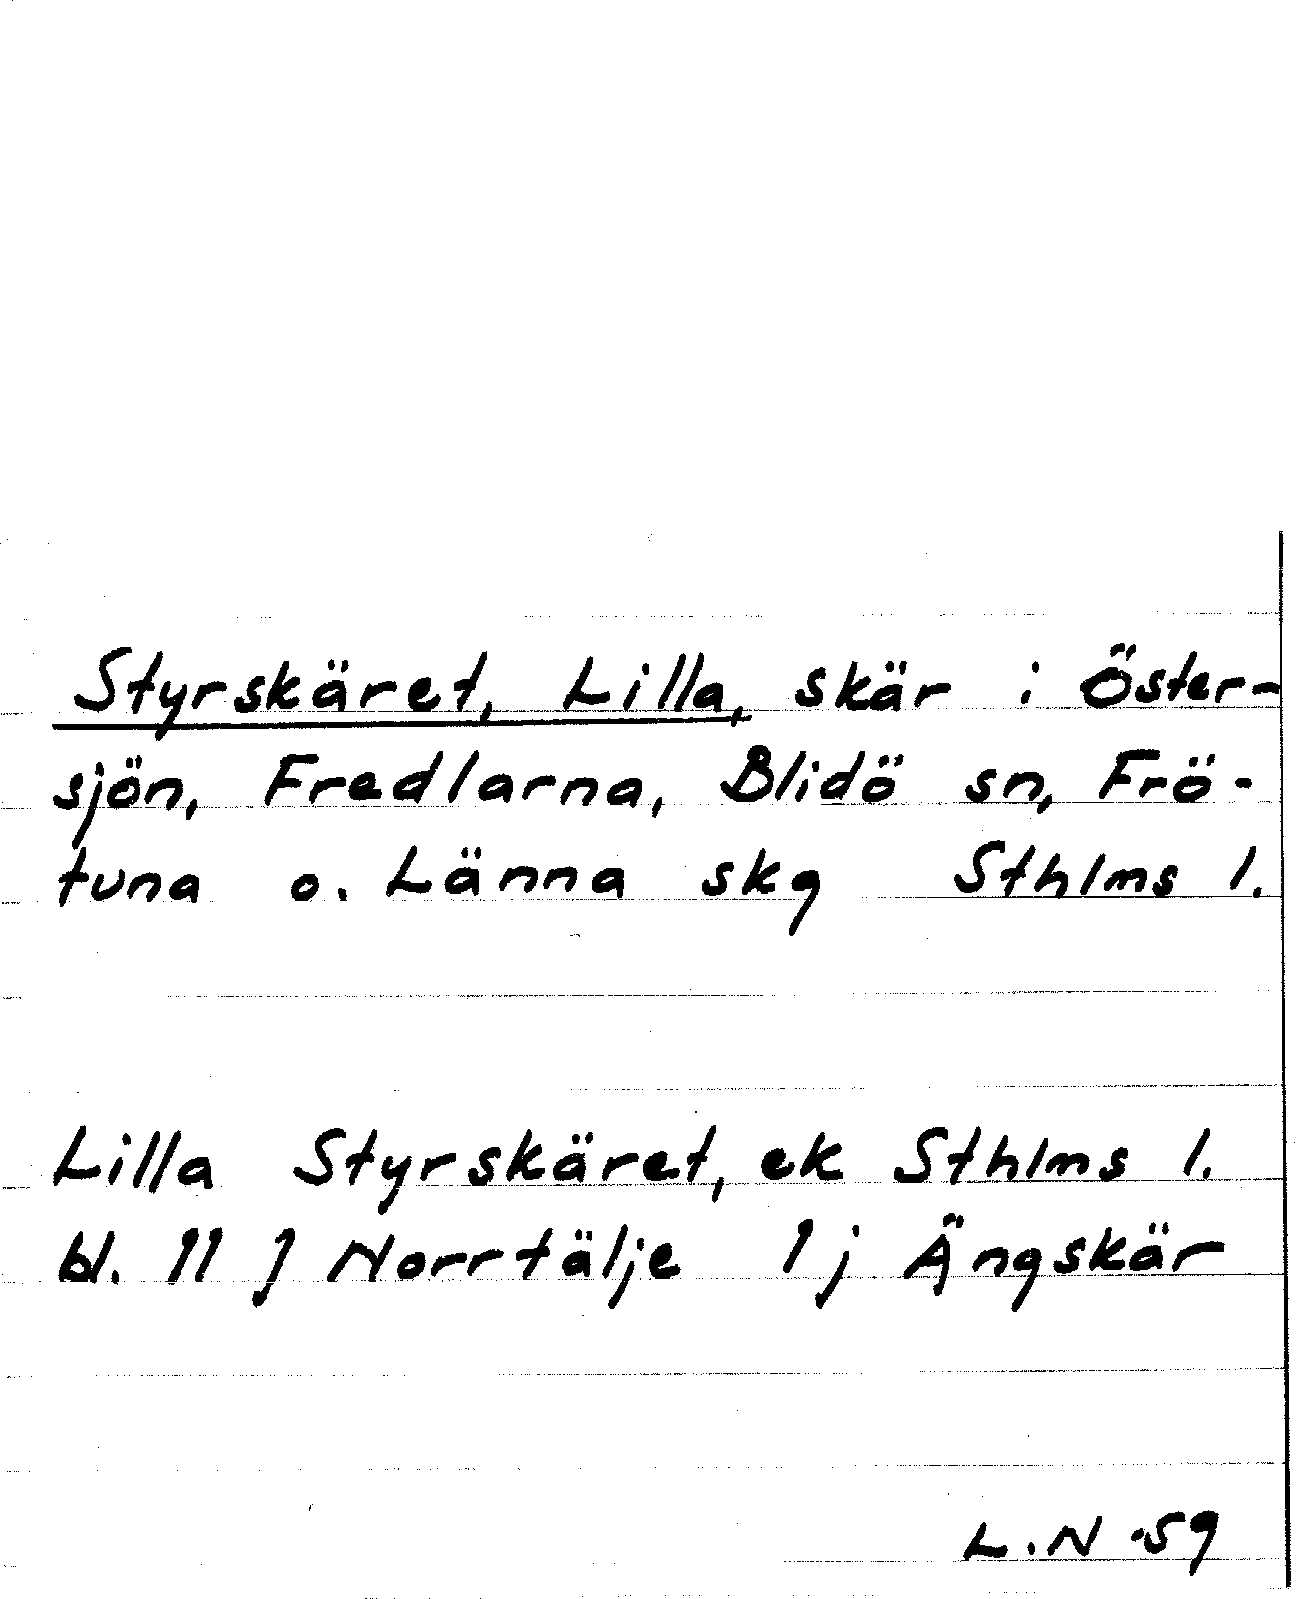 Styrskäret, Lilla, skär i Öster-
sjön, Fredlarna, Blidö sn, Frö-
tuna o. Länna skg Sthlms l.
Lilla Styrskäret, ek Sthlms l.
bl. 11 J Norrtälje 1 j Ängskär
L.N -59